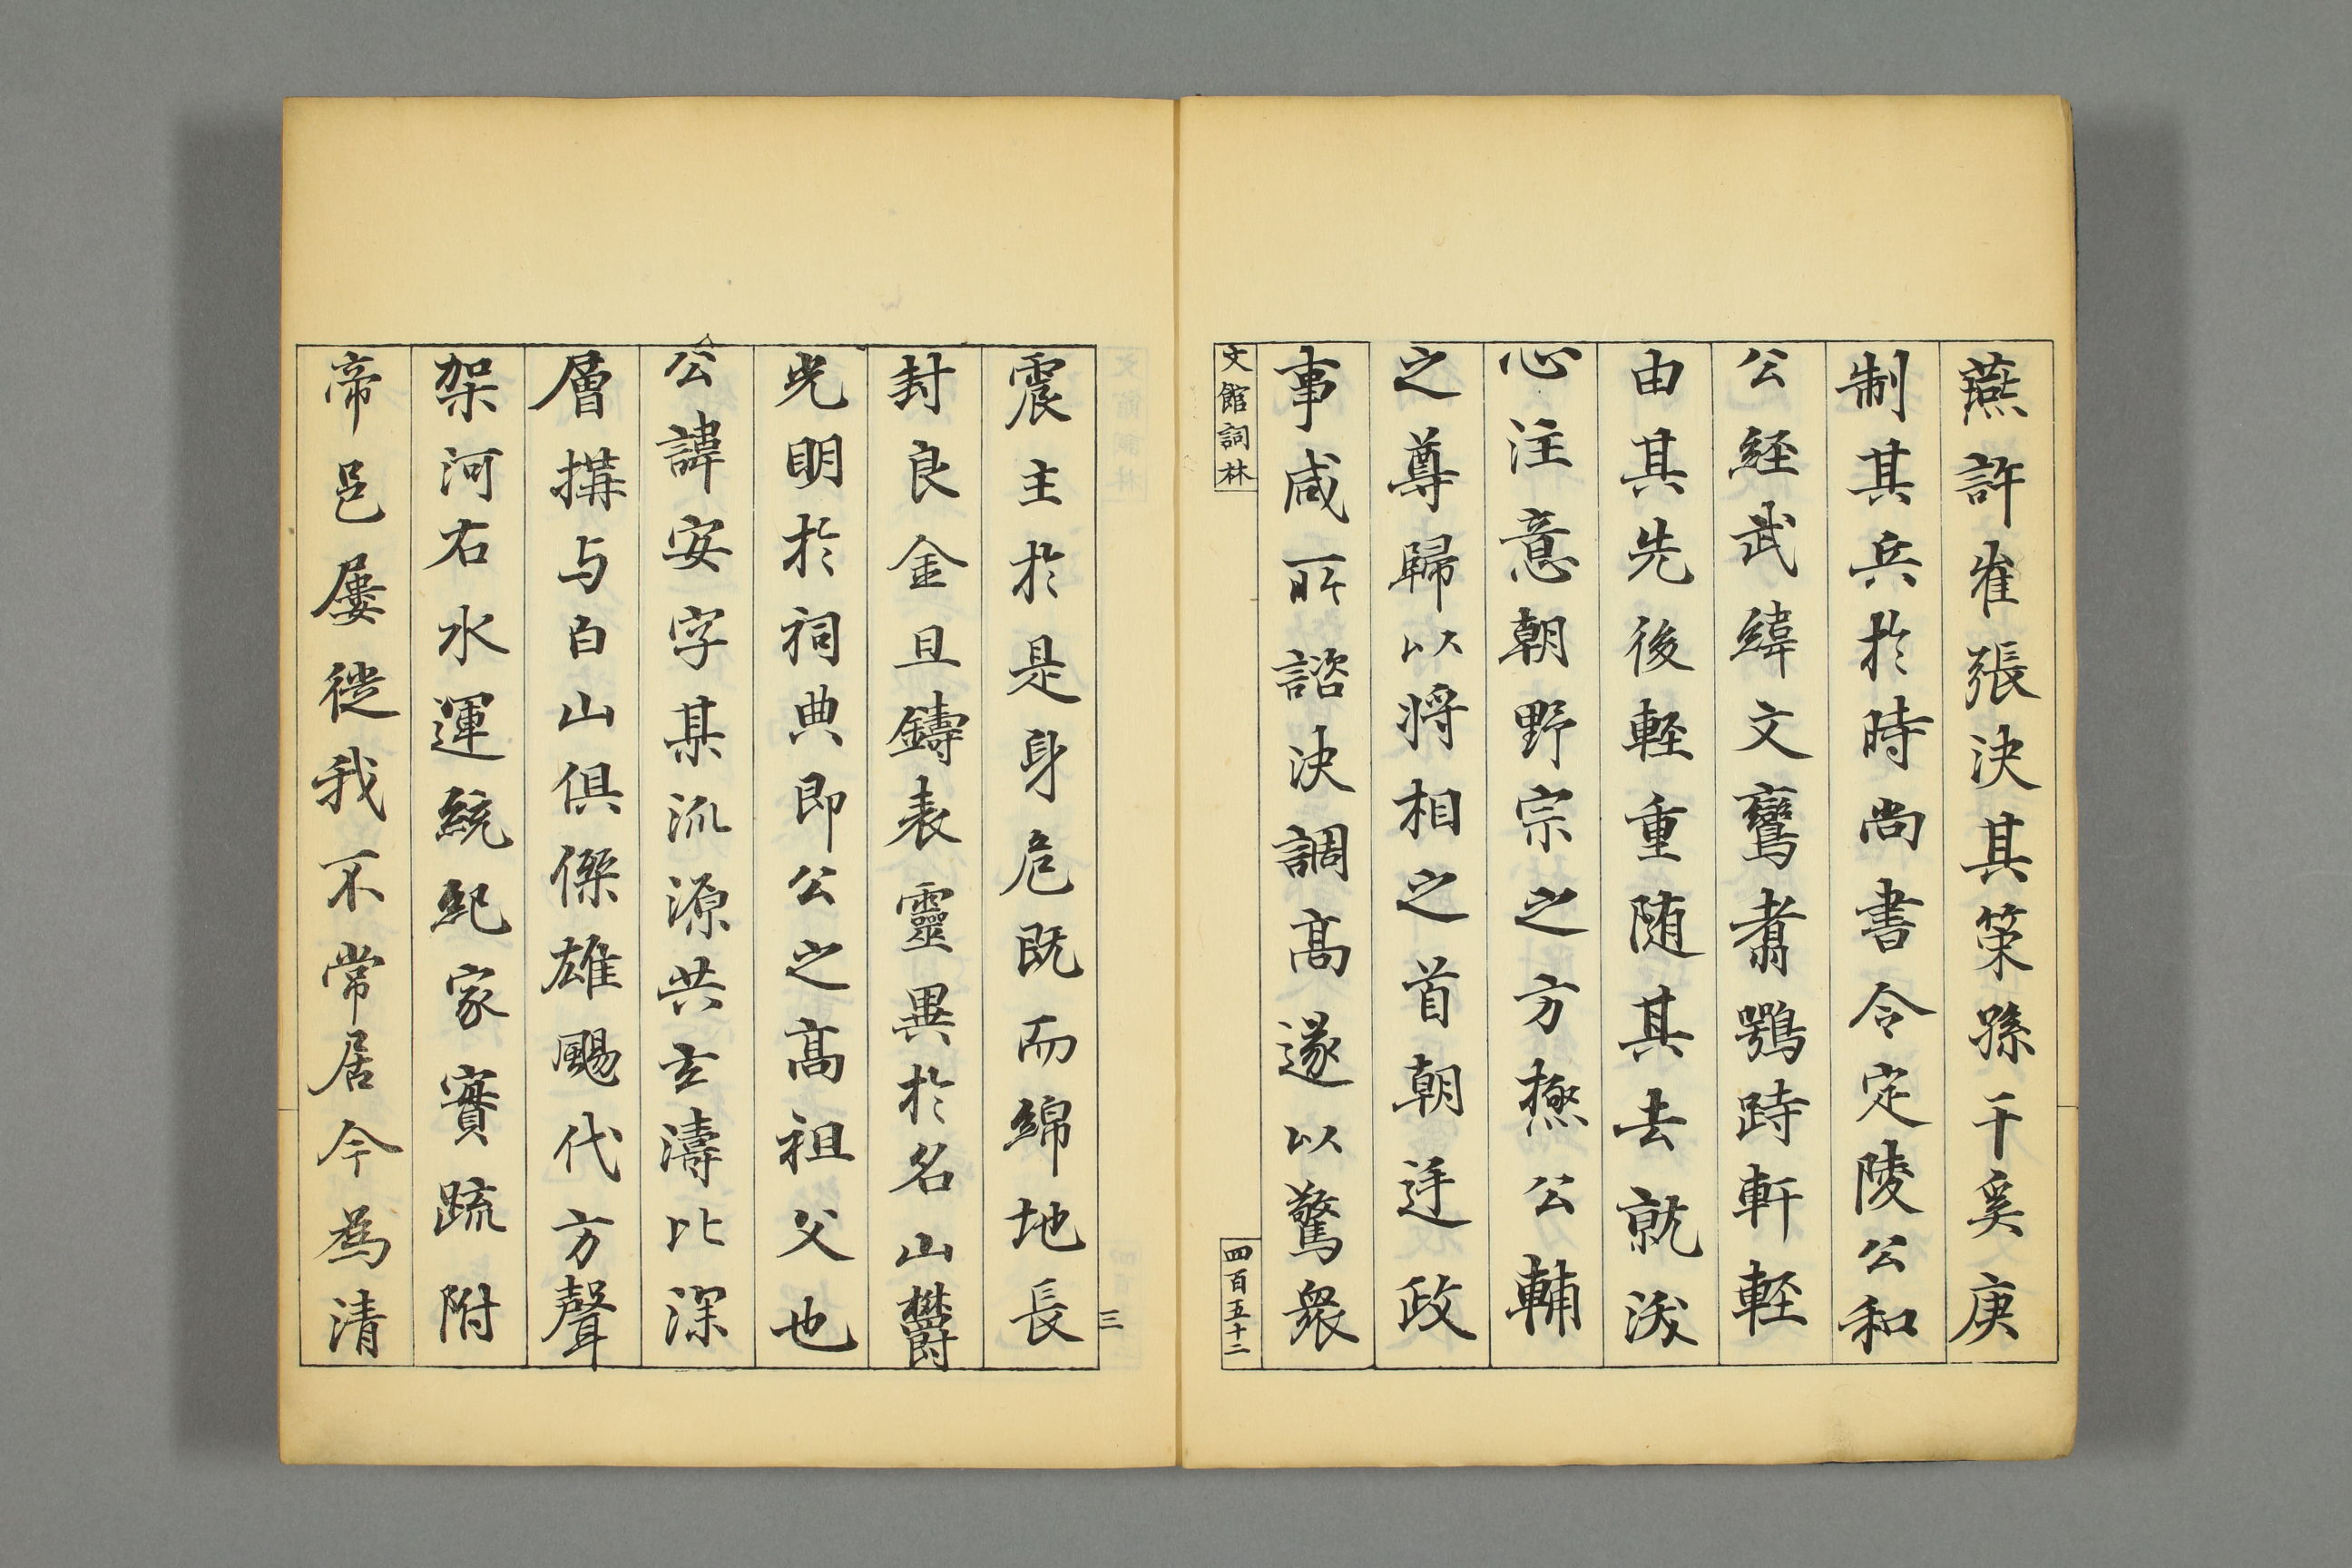 燕許崔張決其策孫千奚庚
制其兵於時尚書令定陵公和
公経武緯文鸞翥鶚跱軒軽
由其先後軽重随其去就渙
心注意朝野宗之方撫公輔
之尊歸以将相之首朝廷政
事咸所諮決調高遂以驚衆
文館詞林
四百五十二
三
震主於是身危既而綿地長
封良金且鑄表靈異於名山欝
光明於祠典即公之高祖父也
公諱安字某流源共玄濤比深
層搆与白山倶傑雄颺代方聲
架河右水運統紀家實疏附
帝邑屢徙我不常居今為清